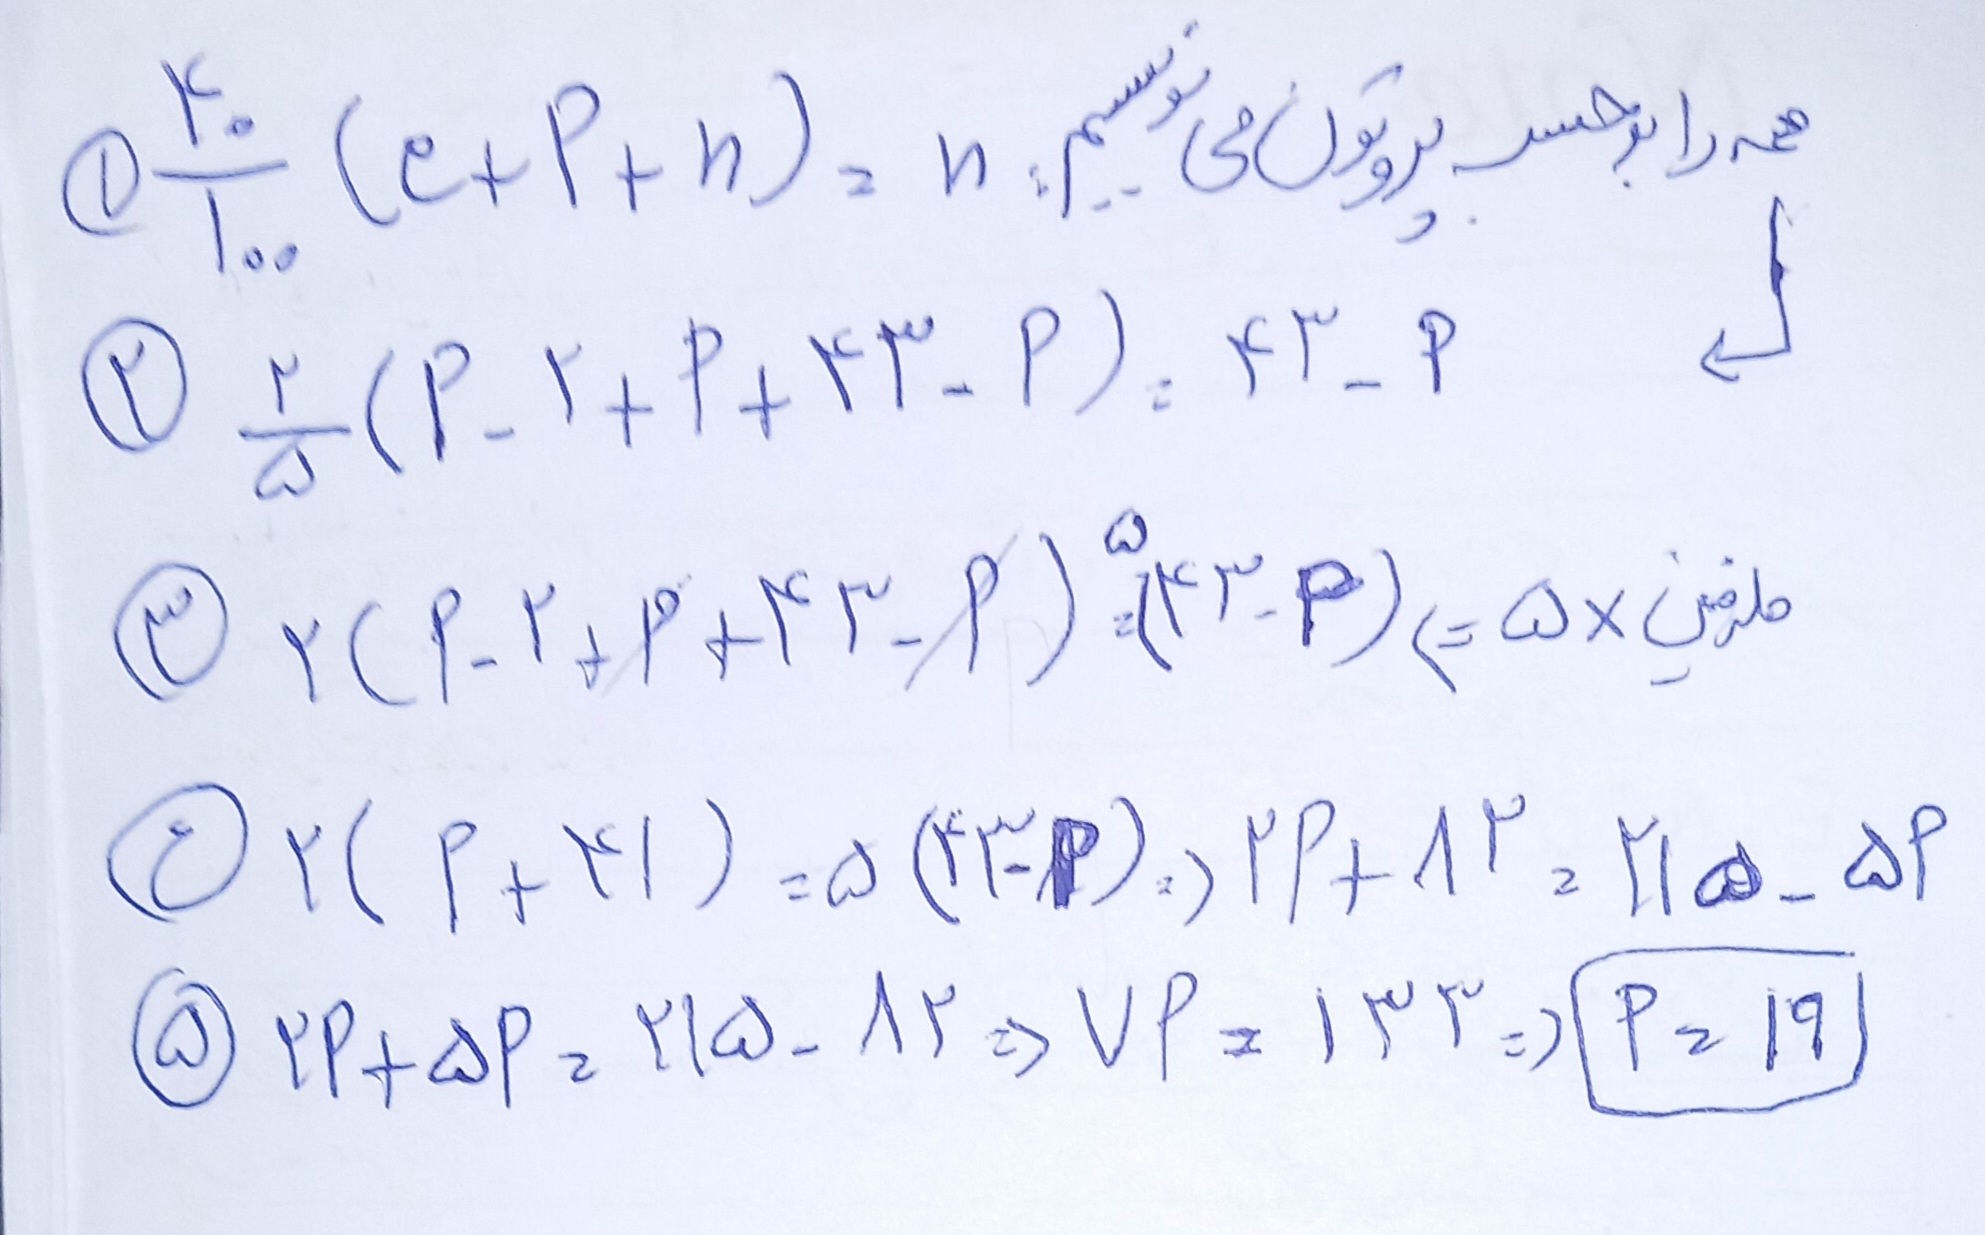 ① ۴۰/۱۰۰ (e+P+n) = n :همه را برحسب پروتون می نویسیم
② ۲/۵ (P-۲+P+۴۳-P) = ۴۳-P
③ ۲(P-۲+P+۴۳-P) = ۵(۴۳-P) <= ۵ × طرفین
④ ۲(P+۴۱) = ۵(۴۳-P) => ۲P+۸۲ = ۲۱۵-۵P
⑤ ۲P+۵P = ۲۱۵-۸۲ => ۷P = ۱۳۳ => P = ۱۹